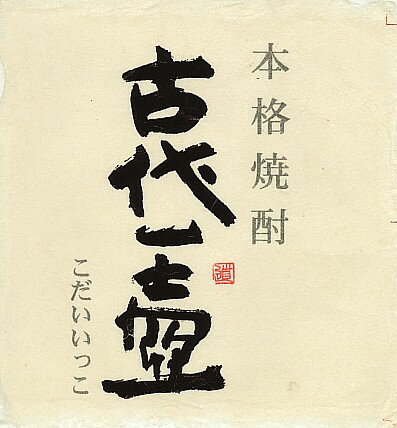 本格焼酎
古代一壷
こだいいっこ